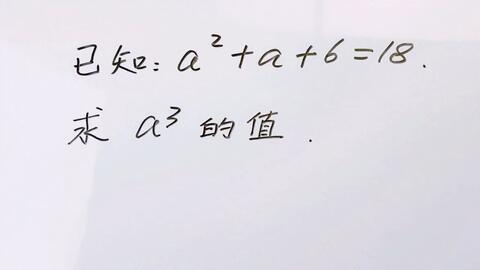 已知: a²+a+6=18.
求 a³ 的值.